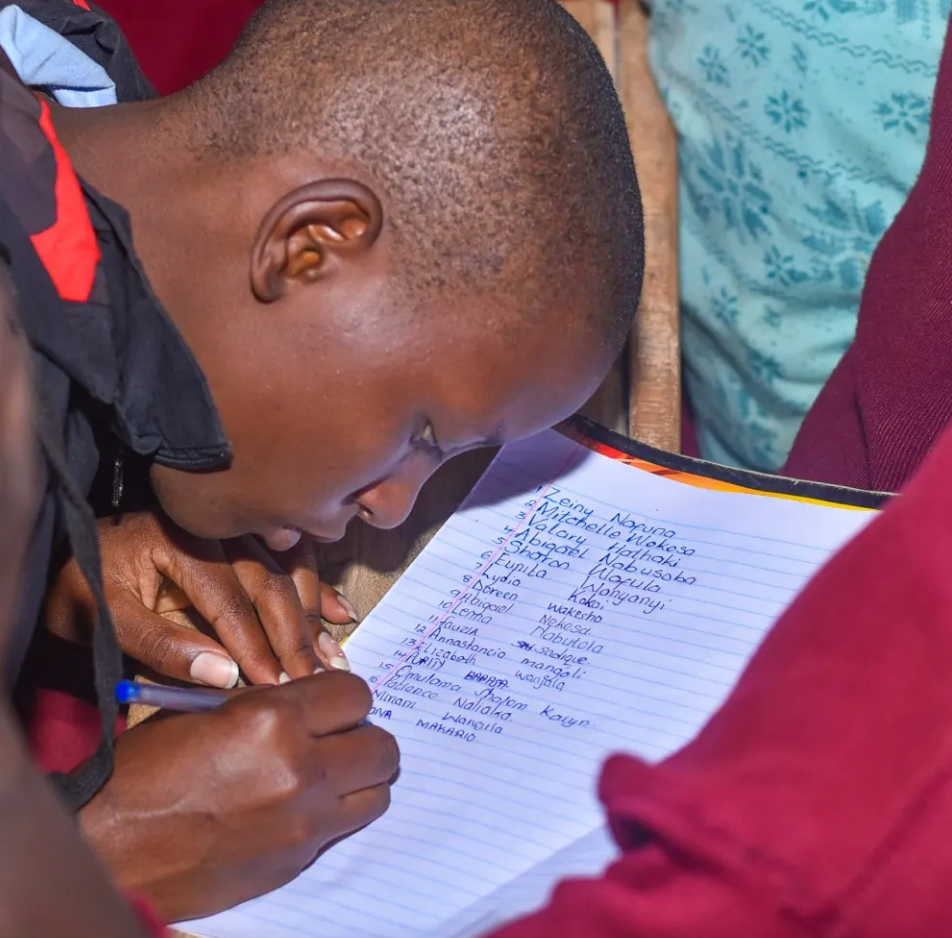 1 Zeiny Naruna
2 Mitchelle Wekesa
3 Valary Nathaki
4 Abigael Nabusoba
5 Sharon Wafula
6 Eunila Wanyanyi
7 Lydia Koko
8 Doreen Wakesho
9 Abigael Nekesa
10 Lenna Nabutola
11 Fauzia Sadique
12 Annastancia mangali
13 Elizabeth wanjala
14 Purity
15 Omulama Shalom Karyn
16 Patience Naliaka
Miriam Wangila
MAKARIO